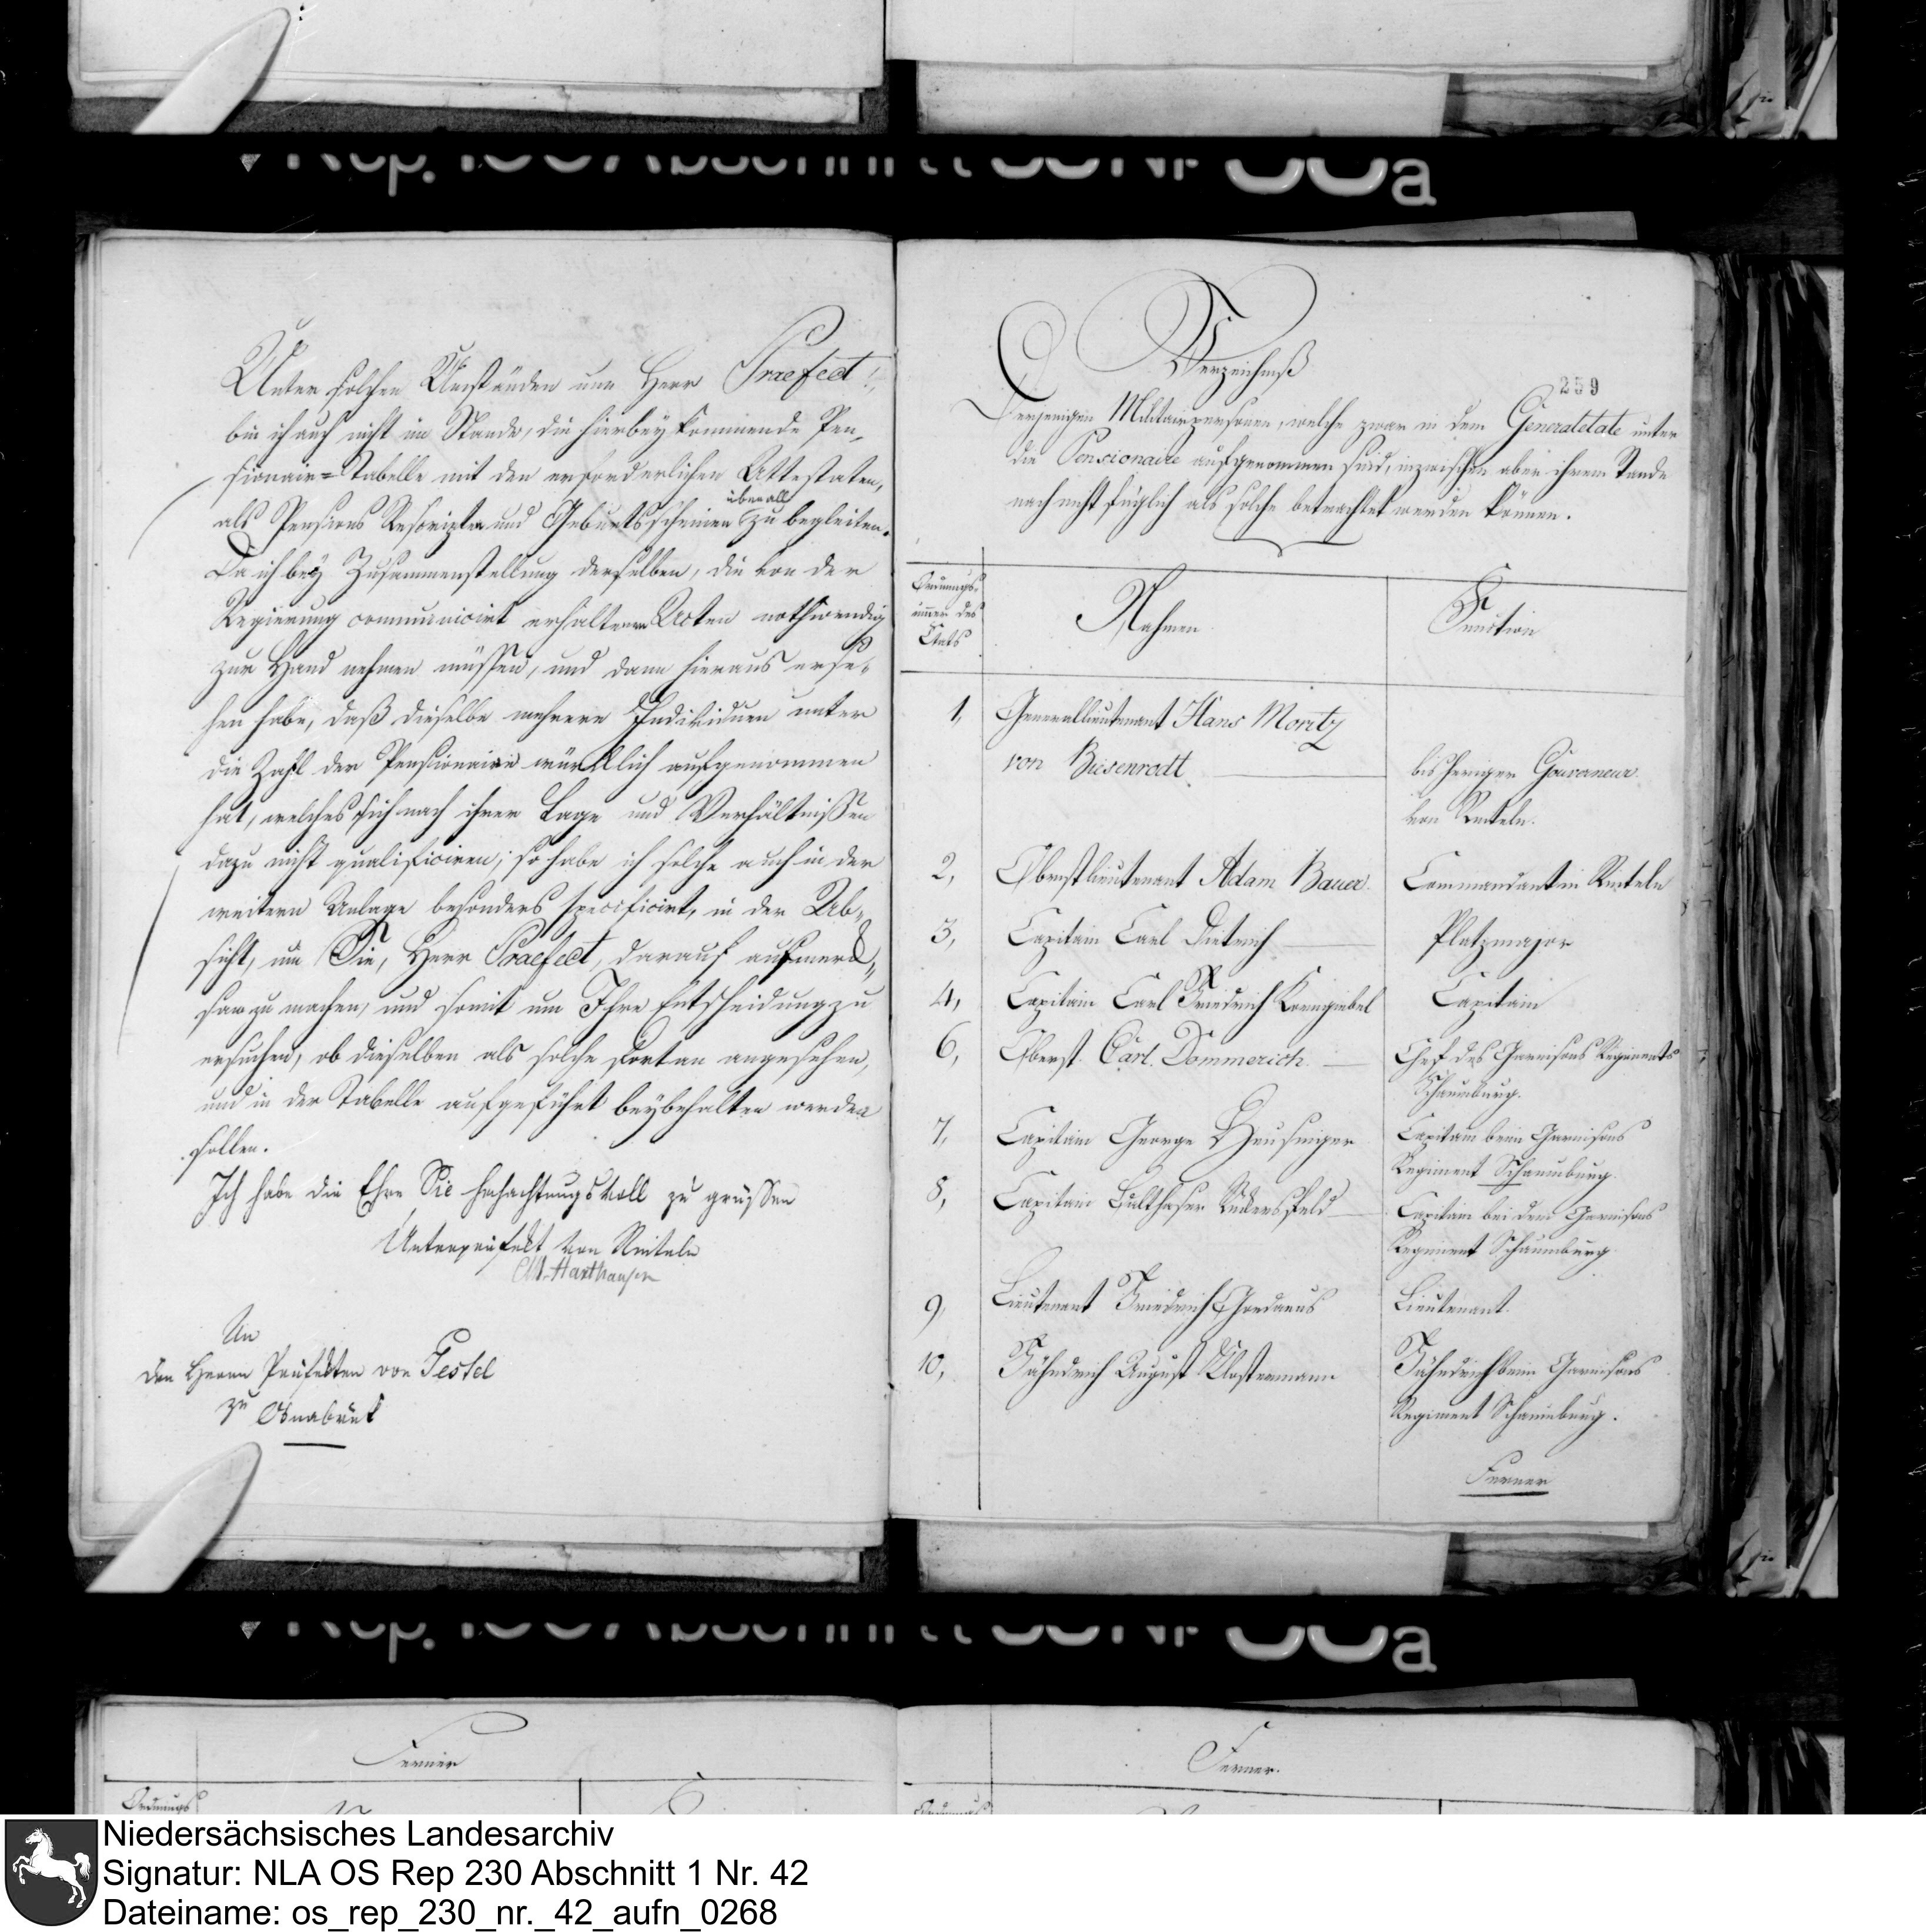 Unter solchen Umständen nun Herr Praefect!,
bin ich auch nicht im Stande, die hierbey kommende Pen„
sionair=Tabelle mit den erforderlichen Attestaten,
überall
als Pensions Rescripten und Geburtsscheinen zu begleiten.
Da ich bey Zusammenstellung derselben, die von der
Regierung communicirt erhaltenen Acten nothwendig
zur Hand nehmen müssen, und dann hieraus erse„
hen habe, daß dieselbe mehrere Individuen unter
die Zahl der Pensionaire würcklich aufgenommen
hat, welche sich nach ihrer Lage und Verhältnissen
dazu nicht qualificiren; so habe ich solche auch in der
weitern Anlage besonders specificirt, in der Ab„
sicht, um Sie, Herr Praefect, darauf aufmerck„
sam zu machen, und somit um Ihre Entscheidung zu
ersuchen, ob dieselben als solche fortan angesehen,
und in der Tabelle aufgeführt beybehalten werden
sollen.
Ich habe die Ehre Sie hochachtungsvoll zu grüssen
Unterpräfekt von Rinteln
Haxthausen
An
den Herrn Präfekten von Pestel
zu Osnabrück
Verzeichniß
259
Derjenigen Militairpersonen, welche zwar in dem Generaletate unter
die Pensionaire aufgenommen sind, inzwischen aber ihrem Stande
nach nicht füglich als solche betrachtet werden können.
Ordnungs-
numer des
Etats
Nahmen
Function
1, Generallieutenant Hans Moritz
von Biesenrodt
bisheriger Gouverneur
von Rinteln.
2, Obristlieutenant Adam Bauer. Commandant in Rinteln
3, Capitain Carl Dietrich Platzmajor
4, Capitain Carl Friedrich Korngiebel Capitain
6, Oberst. Carl. Dommerich. Chef des Garnisons Regiments
Schaumburg.
7, Capitain George Heusinger Capitain beim Garnisons
Regiment Schaumburg.
8, Capitain Balthasar Capitain bei dem Garnisons
Regiment Schaumburg
9, Lieutenant Friedrich Gordanus Lieutenant.
10, Fähndrich August Klostermann Fähndrich beim Garnisons
Regiment Schaumburg.
Ferner
Ferner
Ordnungs
Ferner.
Niedersächsisches Landesarchiv
Signatur: NLA OS Rep 230 Abschnitt 1 Nr. 42
Dateiname: os_rep_230_nr._42_aufn_0268